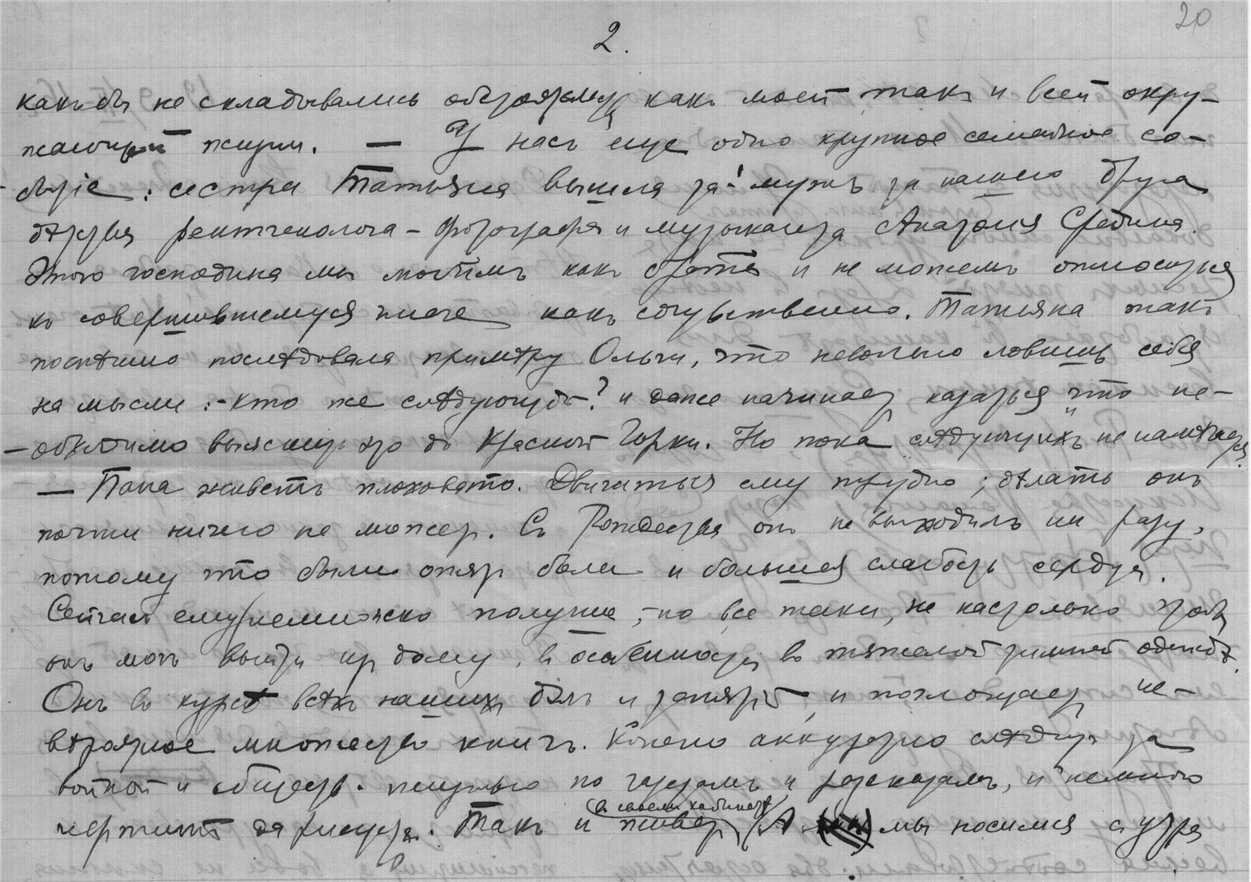 20
2.
какъ бы не складывались обстоятельства какъ моей такъ и всей окру-
жающей жизни. — У насъ еще одно крупное семейное со-
бытіе: сестра Татьяна вышла за мужъ за нашего друга
доктора рентгенолога-фотографа и музыканта Анатолія Средина.
Этого господина мы любимъ какъ брата и не можемъ относиться
къ совершившемуся иначе какъ сочувственно. Татьяна такъ
поспѣшно послѣдовала примѣру Ольги, что невольно ловишь себя
на мысли: - кто же слѣдующій? и даже начинаетъ казаться что не-
обходимо выяснить это до Красной Горки. Но пока слѣдующихъ не намѣчается.
— Папа живетъ плоховато. Двигаться ему трудно; дѣлать онъ
почти ничего не можетъ. Съ Рождества онъ не выходилъ ни разу,
потому что были опять боли и большая слабость сердца.
Сейчасъ ему немножко получше, но все таки, не настолько чтобы
онъ могъ выйти изъ дому, въ особенности въ тяжелой зимней одеждѣ.
Онъ въ курсѣ всѣхъ нашихъ дѣлъ и занятій, и поглощаетъ не-
вѣроятное множество книгъ. Конечно аккуратно слѣдитъ за
войной и обществ. жизнью по газетамъ и разсказамъ, и немного
чертитъ да рисуетъ. Такъ и живетъ въ своемъ кабинетѣ. А мы носимся съ утра